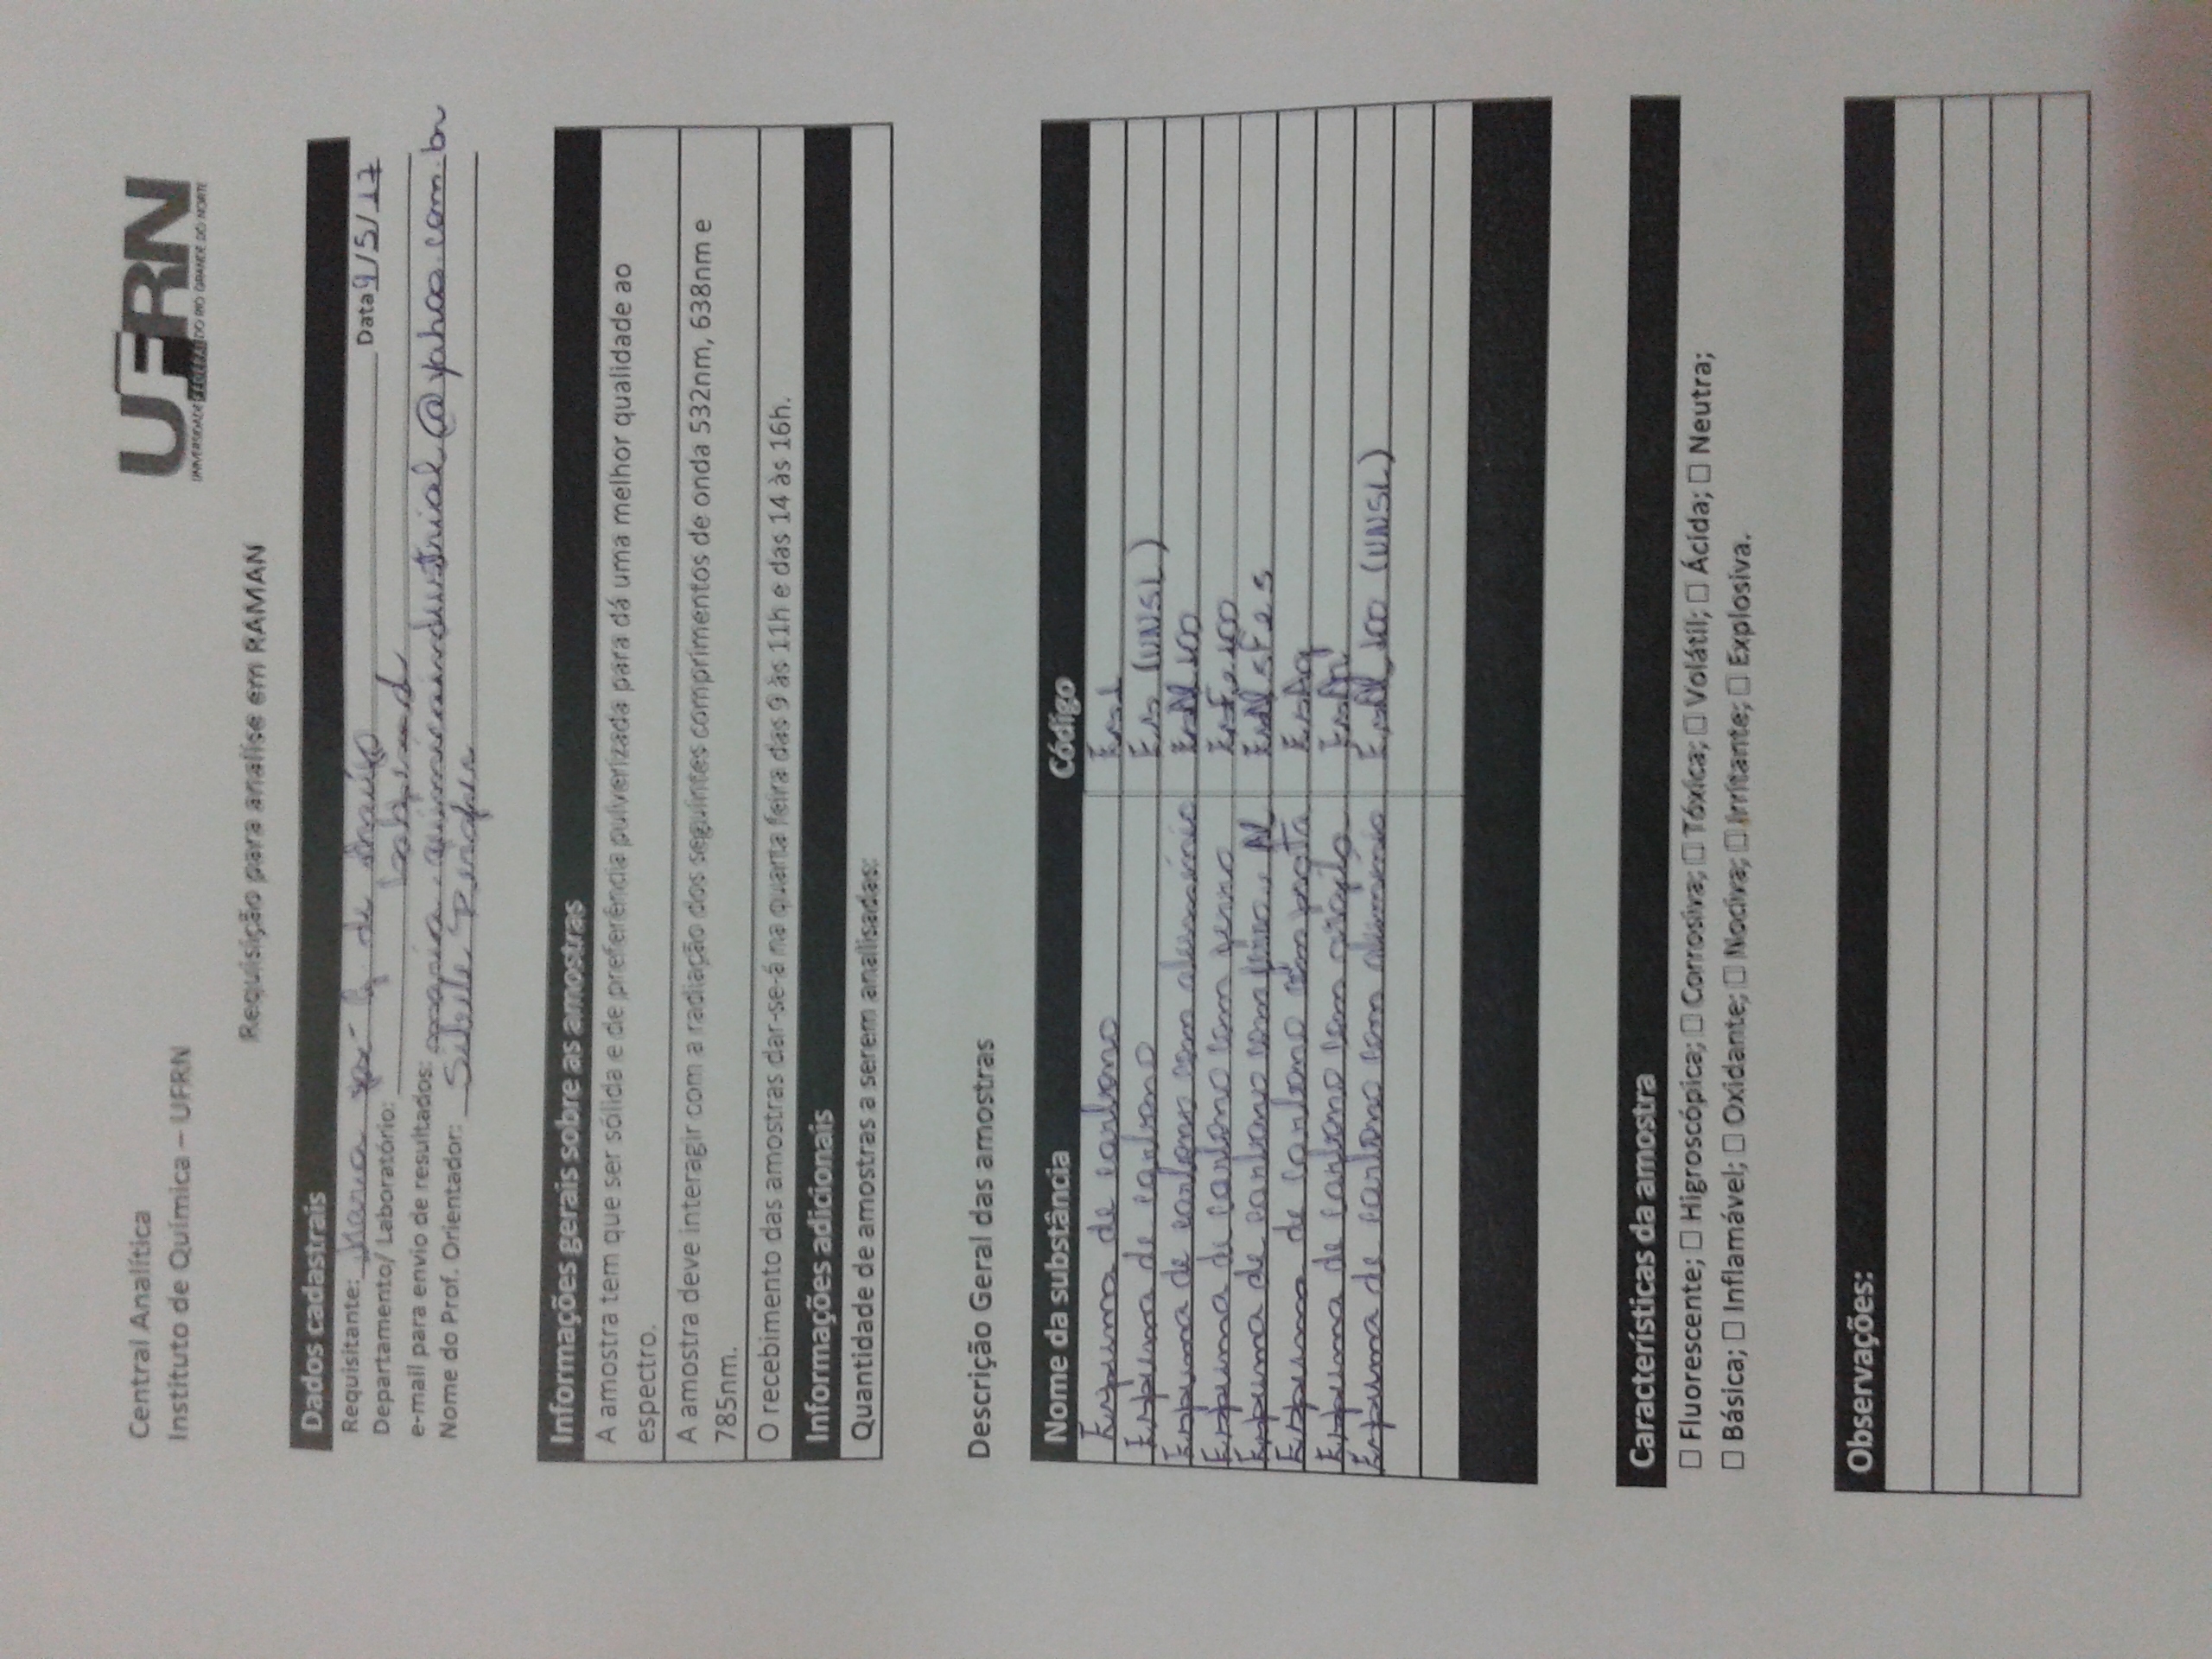 Central Analítica
Instituto de Química – UFRN
UFRN
UNIVERSIDADE FEDERAL DO RIO GRANDE DO NORTE
Requisição para analise em RAMAN
Dados cadastrais
Requisitante: Maria de Araújo Data 9/5/17
Departamento/ Laboratório:
e-mail para envio de resultados: @yahoo.com.br
Nome do Prof. Orientador: Sibele Pergher
Informações gerais sobre as amostras
A amostra tem que ser sólida e de preferência pulverizada para dá uma melhor qualidade ao
espectro.
A amostra deve interagir com a radiação dos seguintes comprimentos de onda 532nm, 638nm e
785nm.
O recebimento das amostras dar-se-á na quarta feira das 9 às 11h e das 14 às 16h.
Informações adicionais
Quantidade de amostras a serem analisadas:
Descrição Geral das amostras
Nome da substância Código
Espuma de carbono Es1
Espuma de carbono Es (UNSL)
Espuma de carbono com alumínio EsAl 100
Espuma de carbono com ferro EsFe 100
Espuma de carbono com ferro e Al EsAl 5Fe 5
Espuma de carbono com prata EsAg
Espuma de carbono com argila EsAr
Espuma de carbono com alumínio EsAl 100 (UNSL)
Características da amostra
□ Fluorescente; □ Higroscópica; □ Corrosiva; □ Tóxica; □ Volátil; □ Ácida; □ Neutra;
□ Básica; □ Inflamável; □ Oxidante; □ Nociva; □ Irritante; □ Explosiva.
Observações: